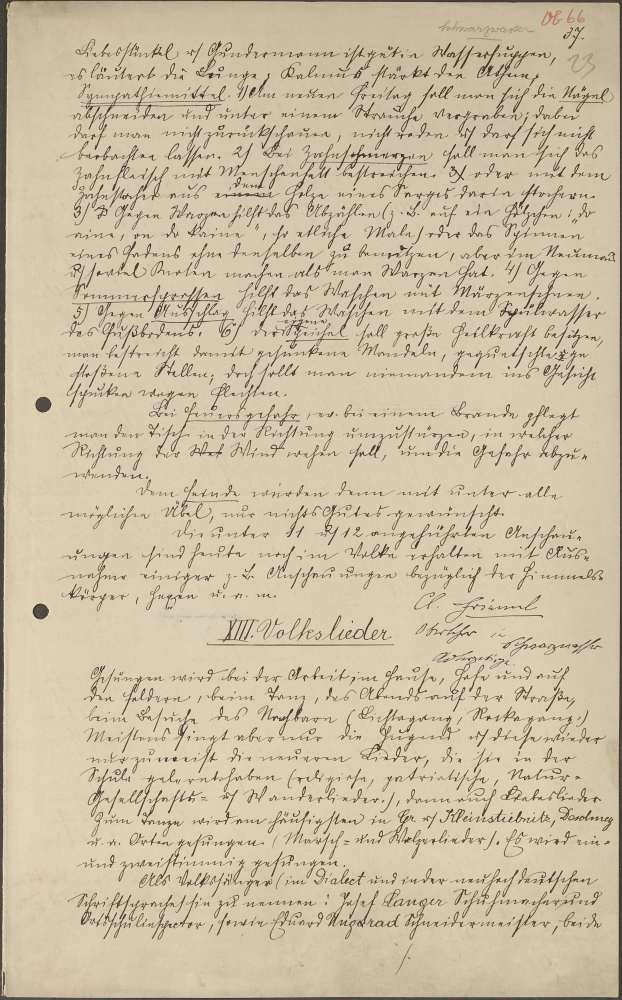 Schwarzwasser
OB 66
37.
23
Liebesstünkel u/ Gundermann ist gut in Wassersuppen,
es läutert die Lunge; Kalmus stärkt den Athem;
Sympathiemittel. 1) Am Freitag soll man sich die Nägel
abschneiden und unter einem Strauche vergraben; dabei
darf man nicht zurückschauen, nicht reden u/ darf sich nicht
beobachten lassen. 2) Bei Zahnschmerzen soll man sich das
Zahnfleisch mit Menschenfett bestreichen. oder mit dem
Zahnstocher aus dem Holze eines Sarges darin stochern.
3) Gegen Warzen hilft das Abzählen (z. B. auf ein Hölzchen: „do
aine, on do kaine", so etliche Male) oder das Spinnen
eines Fadens ohne denselben zu benützen, aber im Neumon
u/ soviel Knoten machen als man Warzen hat. 4) Gegen
Sommersprossen hilft das Waschen mit Märzenschnee.
5) Gegen Ausschlag hilft das Waschen mit dem Spülwasser
des Fußbodens. 6) Der eigene Speichel soll große Heilkraft besitzen,
man bestreicht damit gesunkene Mandeln, gequetschte u/ ge
stoßene Stellen; doch sollt man niemandem ins Gesicht
spucken wegen Flechten.
Bei Feuersgefahr, ev. bei einem Brande pflegt
man den Tisch in der Richtung umzustürzen, in welcher
Richtung der Wind wehen soll, um die Gefahr abzu=
wenden.
Dem Feinde würden denn mit unter alle
möglichen Übel, nur nichts Gutes gewünscht.
Die unter 11 u/ 12 angeführten Anschau=
ungen sind heute noch im Volke erhalten mit Aus=
nahme einiger z. B. Anschauungen bezüglich der Himmels=
körper, Hexen u. s. w.
Oberlehrer in
Schwarzwasser
XIII. Volkslieder.
Gesungen wird bei der Arbeit im Hause, Hofe und auf
den Feldern, beim Tanz, des Abends auf der Straße,
beim Besuche des Nachbarn (Lichtagang, Rockagang.)
Meistens singt aber nur die Jugend u/ diese wieder
nur zumeist die neueren Lieder, die sie in der
Schule gelernt haben (religiöse, patriotische, Natur=
Gesellschafts= u/ Wanderlieder.), dann auch Liebeslieder
Zum Tanze wird am häufigsten in Gr. u/ Kleinstiebnitz,
u. a. Orten gesungen. (Marsch= und Walzerlieder). Es wird ein=
und zweistimmig gesungen.
Als Volkssänger (im Dialect und in der neuhochdeutschen
Schriftsprache) sin zu nennen: Josef Langer Schuhmacher und
Ortsschulinspector, sowie Eduard Schneidermeister, beide